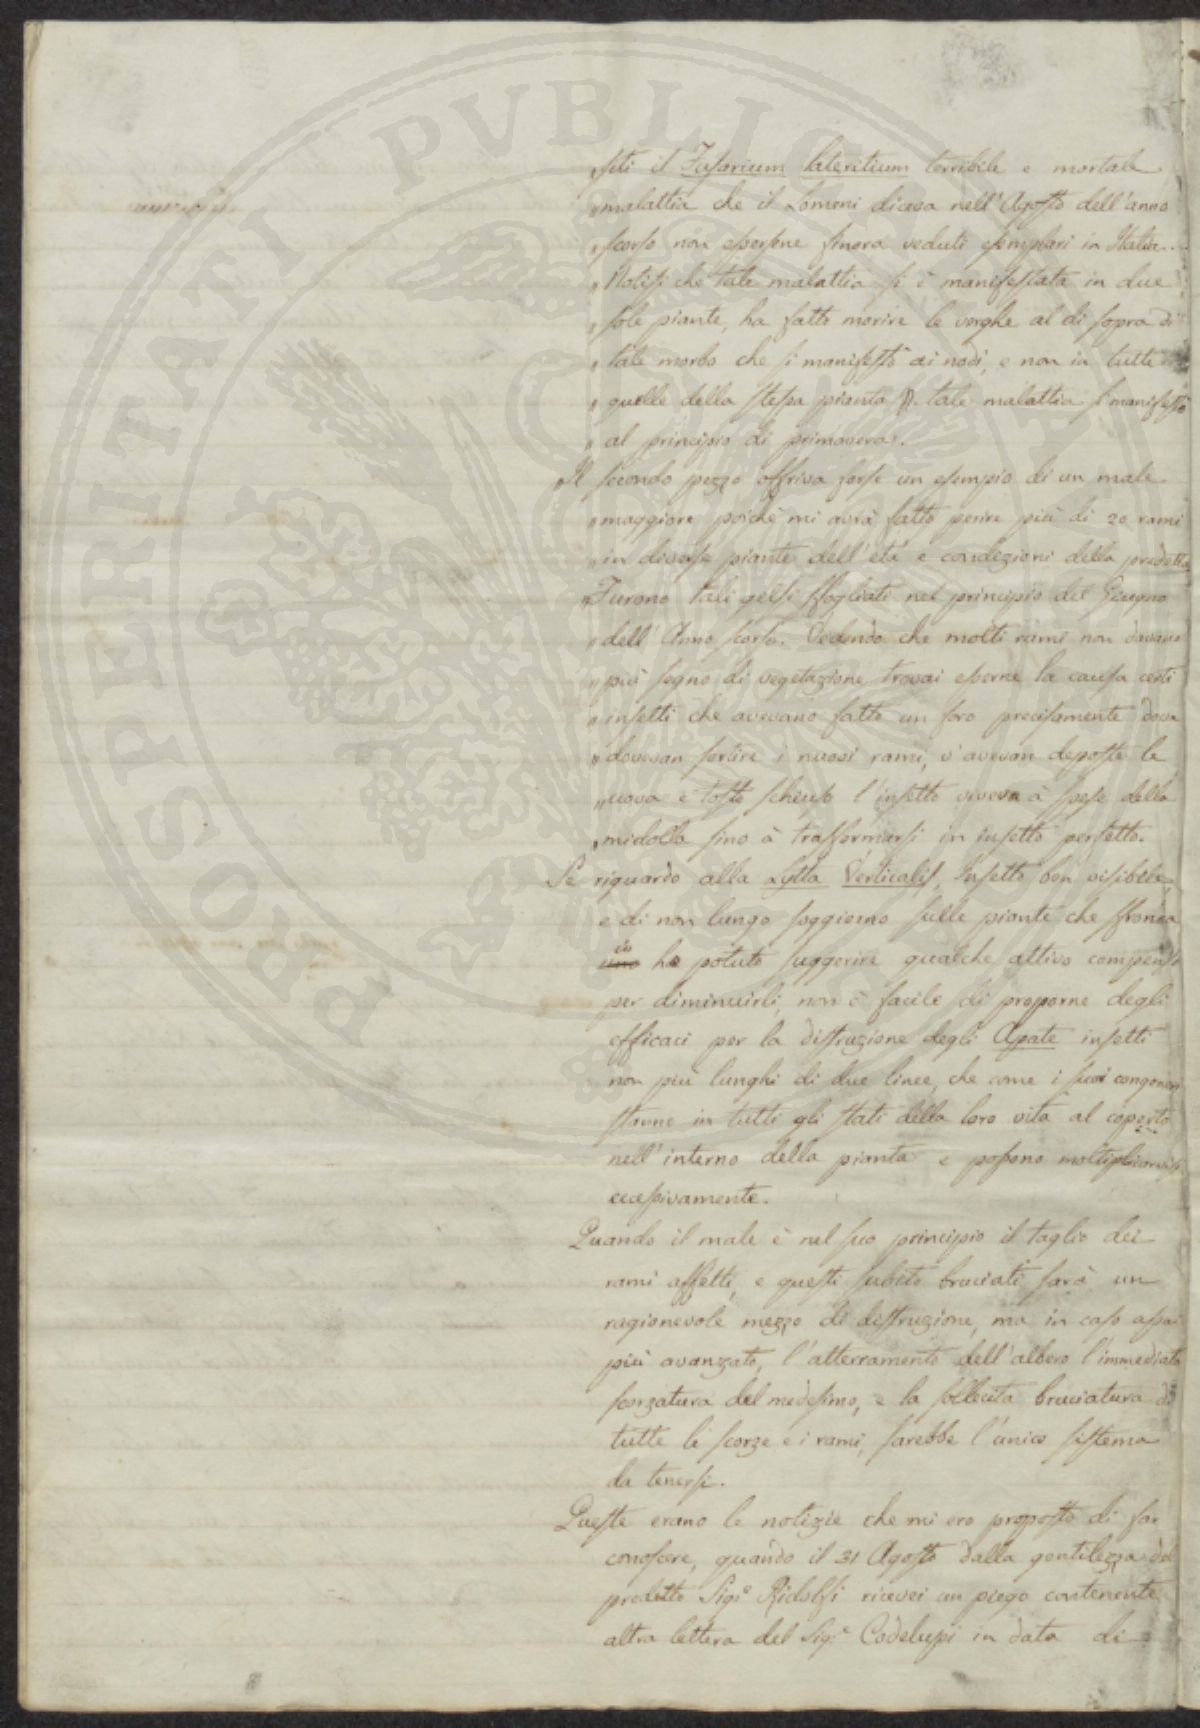 PROSPERITATI PVBLICAE
„siti il Fusarium lateritium terribile e mortale
„malattia che il Lomeni diceva nell'Agosto dell'anno
„scorso non essersene finora veduti esemplari in Italia...
„Notisi che tale malattia si è manifestata in due
„sole piante, ha fatto morire le verghe al di sopra di
„tale morbo che si manifestò ai nodi, e non in tutte
„quelle della stessa pianta. tale malattia si manifestò
„al principio di primavera.
„Il secondo pezzo offriva forse un esempio di un male
„maggiore poichè mi avrà fatto perire più di 20 rami
„in diverse piante dell'età e condizioni della predetta
„Furono tali gelsi sfogliati nel principio del Giugno
„dell'Anno scorso. Vedendo che molti rami non davano
„più segno di vegetazione trovai esserne la causa certi
„insetti che avevano fatto un foro precisamente dove
„dovevan sortire i nuovi rami, v'avevan deposte le
„uova e tosto schiuso l'insetto viveva à spese della
„midolla fino à trasformarsi in insetto perfetto.
Se riguardo alla Lytta Verticalis, Insetto ben visibile,
e di non lungo soggiorno sulle piante che sfronda
io
uno ho potuto suggerire qualche attivo compenso
per diminuirli, non è facile di proporne degli
efficaci per la distruzione degli Apate insetti
non più lunghi di due linee, che come i suoi congeneri
stanno in tutti gli stati della loro vita al coperto
nell'interno della pianta e possono moltiplicarvisi
eccessivamente.
Quando il male è nel suo principio il taglio dei
rami affetti, e questi subito bruciati sarà un
ragionevole mezzo di distruzione, ma in caso assai
più avanzato, l'atterramento dell'albero l'immediata
scorzatura del medesimo, e la sollecita bruciatura di
tutte le scorze e i rami, sarebbe l'unico sistema
da tenersi.
Queste erano le notizie che mi ero proposto di far
conoscere, quando il 31 Agosto dalla gentilezza del
predetto Sigr. Ridolfi ricevei un piego contenente
altra lettera del Sigr. Codelupi in data di